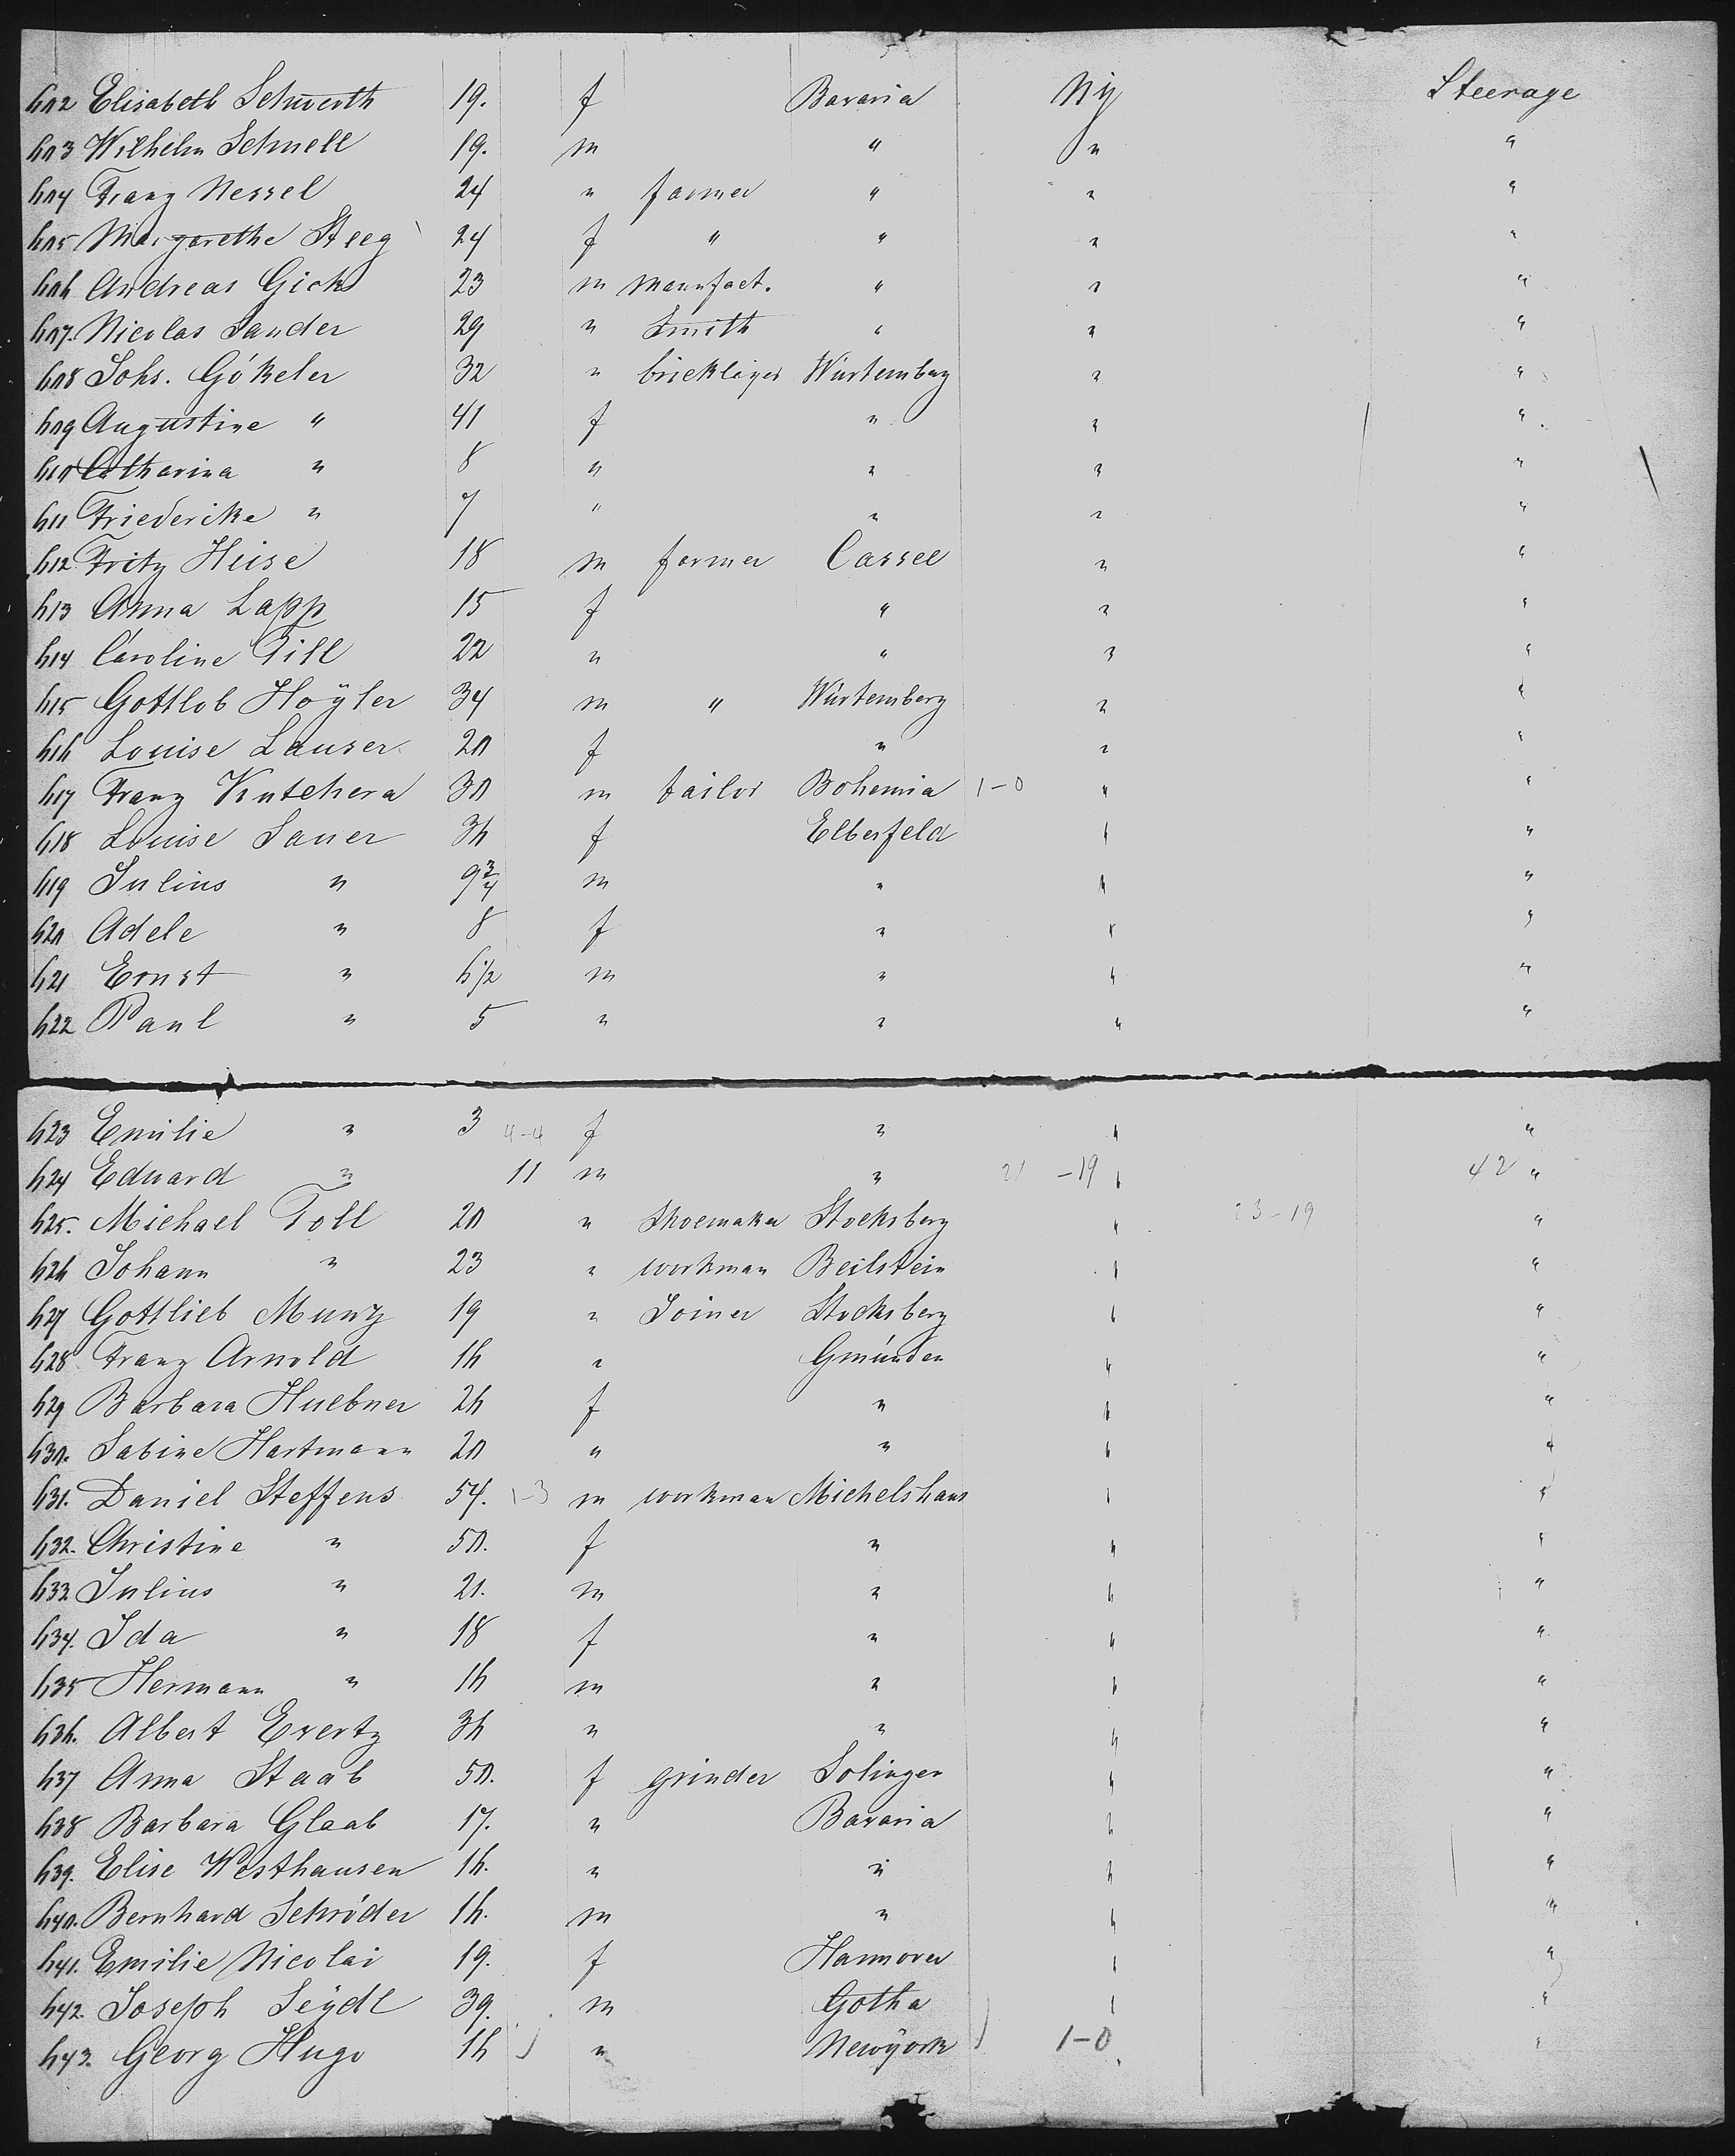 602 Elisabeth Schwerth 19. f Bavaria NY Steerage
603 Wilhelm Schnell 19. m " " "
604 Franz Nessel 24 " farmer " " "
605 Margarethe Steeg 24 f " " " "
606 Andreas Gick 23 m manufact. " " "
607. Nicolas Sander 29 " Smith " " "
608 Johs. Gökeler 32 " bricklayer Würtemberg " "
609 Augustine " 41 f " " "
610 Catharina " 8 " " " "
611 Friederike " 7 " " " "
612 Fritz Heise 18 m farmer Cassel " "
613 Anna Lapp 15 f " " "
614 Caroline Till 22 " " " "
615 Gottlob Höyler 34 m " Würtemberg " "
616 Louise Lauser 20 f " " "
617 Franz Kutchera 30 m tailor Bohemia 1-0 " "
618 Louise Sauer 36 f Elberfeld " "
619 Julius " 9 3/4 m " " "
620 Adele " 8 f " " "
621 Ernst " 6 1/2 m " " "
622 Paul " 5 " " " "
623 Emilie " 3 4-4 f " " "
624 Eduard " 11 m " 21 -19 " 42 "
625. Michael Toll 20 " Shoemaker Stocksberg " 23-19 "
626 Johann " 23 " workman Beilstein " "
627 Gottlieb Munz 19 " Joiner Stocksberg " "
628 Franz Arnold 16 " Gmünden " "
629 Barbara Huebner 26 f " " "
630. Sabine Hartmann 20 " " " "
631. Daniel Steffens 54. 1-3 m workman Michelshaus " "
632. Christine " 50. f " " "
633. Julius " 21. m " " "
634. Ida " 18 f " " "
635 Hermann " 16 m " " "
636. Albert Evertz 36 " " " "
637 Anna Staab 50. f grinder Solingen " "
638 Barbara Glaab 17. " Bavaria " "
639. Elise Westhausen 16. " " " "
640. Bernhard Schröder 16. m " " "
641. Emilie Nicolai 19. f Hannover " "
642. Joseph Seydl 39. m Gotha " "
643. Georg Hugo 16 " Newyork 1-0 "